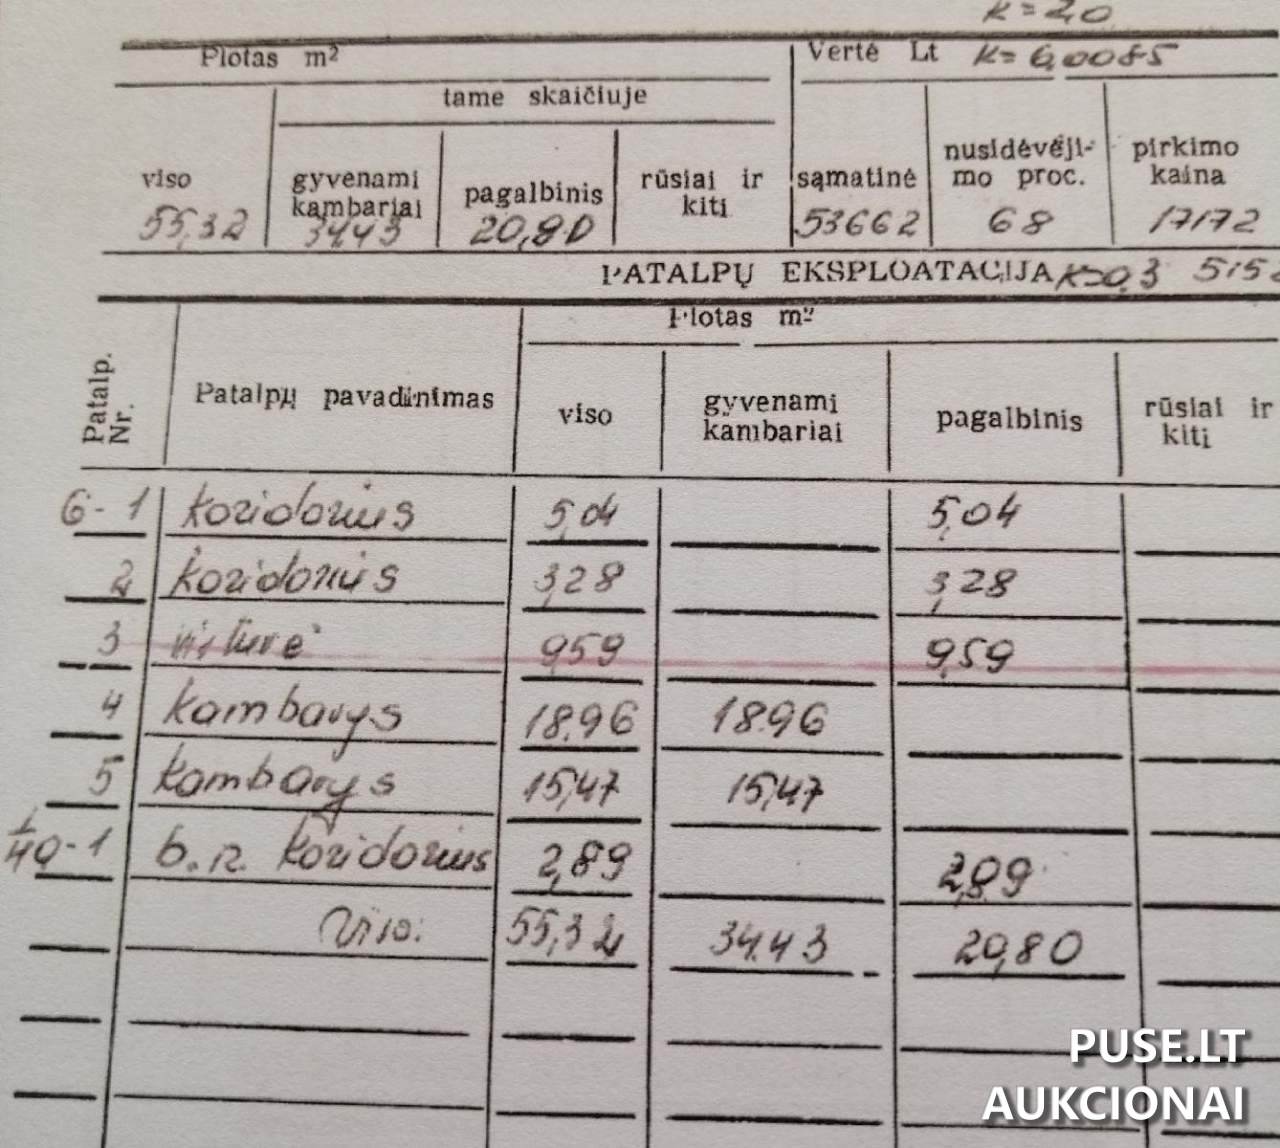 K=2,0
Plotas m² Vertė Lt K=6,0085
tame skaičiuje
viso gyvenami kambariai pagalbinis rūsiai ir kiti sąmatinė nusidėvėji- mo proc. pirkimo kaina
55,32 34,43 20,80 53662 68 17172
PATALPŲ EKSPLOATACIJA K=0,3 5152
Plotas m²
Patalp. Nr. Patalpų pavadinimas viso gyvenami kambariai pagalbinis rūsiai ir kiti
6-1 koridorius 5,04 5,04
2 koridorius 3,28 3,28
3 virtuvė 9,59 9,59
4 kambarys 18,96 18,96
5 kambarys 15,47 15,47
b.n. koridorius 2,89 2,89
Viso: 55,32 34.43 20,80
PUSE.LT
AUKCIONAI